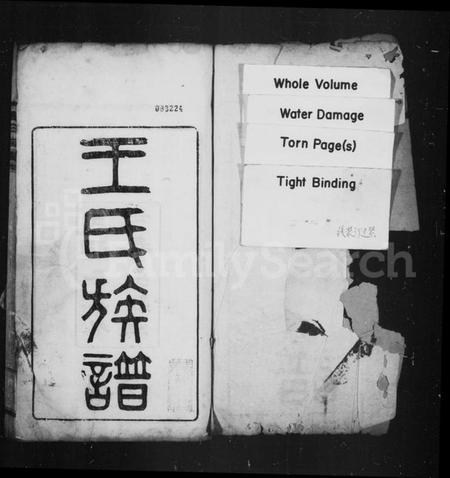 093224
王氏族譜
Whole Volume
Water Damage
Torn Page(s)
Tight Binding
FamilySearch